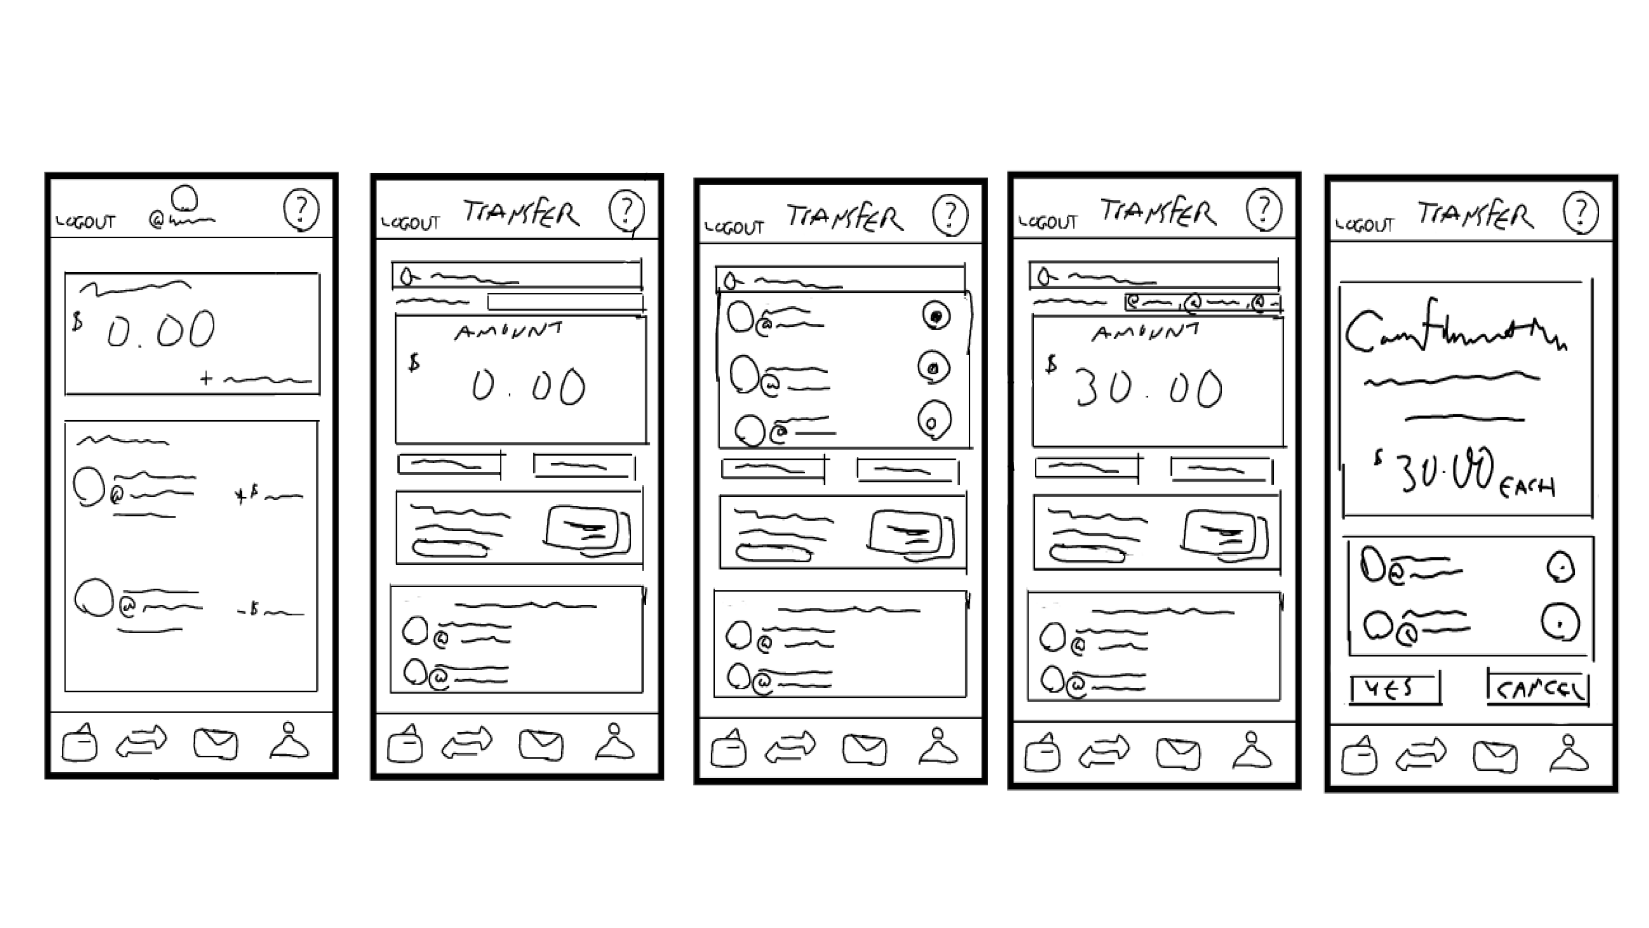 LOGOUT @ ?
$ 0.00
+
@ +$
@ -$
LOGOUT TRANSFER ?
AMOUNT
$ 0.00
@
@
LOGOUT TRANSFER ?
@
@
@
@
@
LOGOUT TRANSFER ?
@ , @ , @
AMOUNT
$ 30.00
@
@
LOGOUT TRANSFER ?
Confirmation
$ 30.00 EACH
@
@
YES CANCEL